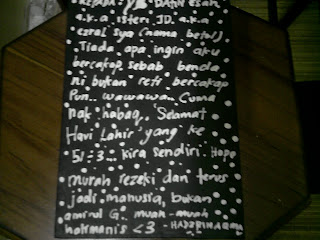 KEPADA: YB DATIN esah
a.k.a isteri JD. a.k.a
ezral sya (nama betul)
Tiada apa ingin aku
bercakap sebab benda
ni bukan reti bercakap
Pun.. wawawa.. Cuma
nak habaq, Selamat
Hari Lahir yang ke
kira sendiri. Hope
murah rezeki dan terus
jadi manusia, bukan
amirul G. muah-muah
hotmani's <3